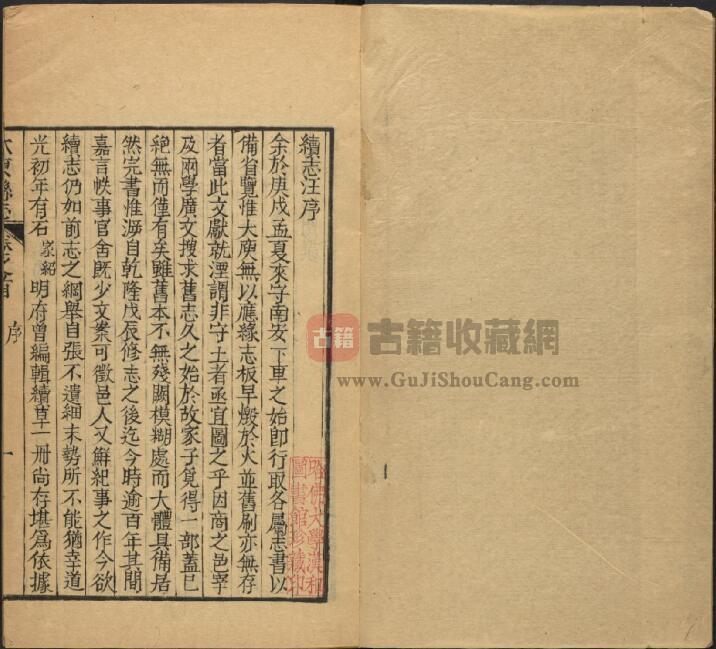 續志汪序
余於庚戌孟夏來守南安下車之始即行取各屬志書以
備省覽惟大庾無以應緣志板早燬於火並舊刷亦無存
者當此文獻就湮謂非守土者亟宜圖之乎因商之邑宰
及兩學廣文搜求舊志久之始於故家子覓得一部蓋已
絶無而僅有矣雖舊本不無殘闕模糊處而大體具備居
然完書惟溯自乾隆戊辰修志之後迄今時逾百年其間
嘉言軼事官舍旣少文案可徵邑人又鮮紀事之作今欲
續志仍如前志之綱舉自張不遺細末勢所不能猶幸道
光初年有石家紹明府曾編輯續草一冊尚存堪為依據
大庾縣志
序
一
哈佛大學漢和
圖書館珍藏印
古籍
古籍收藏網
www.GuJiShouCang.com